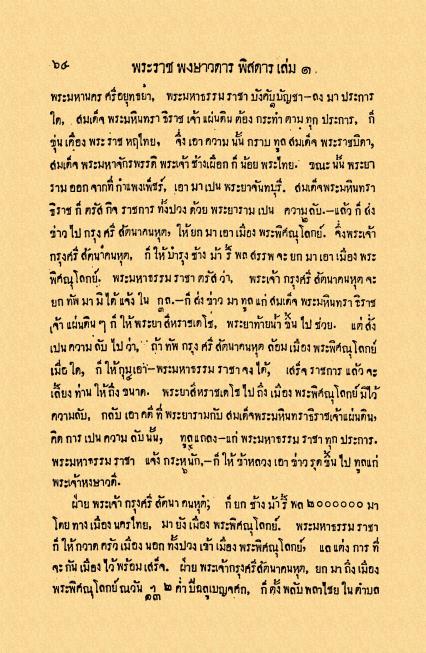 ๖๔ พระราช พงษาวดาร พิสดาร เล่ม ๑
พระมหานคร ศรีอยุทธยา, พระมหาธรรม ราชา บังคับบัญชา-ลง มา ประการ
ใด, สมเด็จ พระมหินทรา ธิราช เจ้า แผ่นดิน ต้อง กระทำ ตาม ทุก ประการ, ก็
ขุ่น เคือง พระ ราช หฤไทย, จึ่ง เอา ความ นั้น กราบ ทูล สมเด็จ พระราชบิดา,
สมเด็จ พระมหาจักรพรรดิ พระเจ้า ช้างเผือก ก็ น้อย พระไทย. ขณะ นั้น พระยา
ราม ออก จากที่ กำแพงเพ็ชร์, เอา มา เปน พระยาจันทบุรี. สมเด็จพระมหินทรา
ธิราช ก็ ตรัส กิจ ราชการ ทั้งปวง ด้วย พระยาราม เปน ความลับ.-แล้ว ก็ ส่ง
ข่าว ไป กรุง ศรี สัตนาคนหุต, ให้ ยก มา เอา เมือง พระพิศณุโลกย์. จึ่งพระเจ้า
กรุงศรี สัตนาคนหุต, ก็ ให้ บำรุง ช้าง ม้า รี้ พล สรรพ จะ ยก มา เอา เมือง พระ
พิศณุโลกย์. พระมหาธรรม ราชา ตรัส ว่า, พระเจ้า กรุงศรี สัตนาคนหุต จะ
ยก ทัพ มา มิ ได้ แจ้ง ใน กล.-ก็ ส่ง ข่าว มา ทูล แก่ สมเด็จ พระมหินทรา ธิราช
เจ้า แผ่นดิน ๆ ก็ ให้ พระยา สีหราชเดโช, พระยาท้ายน้ำ ขึ้น ไป ช่วย. แต่ สั่ง
เปน ความ ลับ ไป ว่า, ถ้า ทัพ กรุง ศรี สัตนาคนหุต ล้อม เมือง พระพิศณุโลกย์
เมื่อ ใด, ก็ ให้ กุมเอา-พระมหาธรรม ราชา จง ได้; เสร็จ ราชการ แล้ว จะ
เลี้ยง ท่าน ให้ ถึง ขนาด. พระยาสีหราชเดโช ไป ถึง เมือง พระพิศณุโลกย์ มิไว้
ความลับ, กลับ เอา คดี ที่ พระยารามกับ สมเด็จพระมหินทราธิราชเจ้าแผ่นดิน,
คิด การ เปน ความ ลับ นั้น, ทูลแถลง-แก่ พระมหาธรรม ราชา ทุก ประการ.
พระมหาธรรม ราชา แจ้ง กระหนัก,-ก็ ให้ ข้าหลวง เอา ข่าว รุด ขึ้น ไป ทูลแก่
พระเจ้าหงษาวดี.
ฝ่าย พระเจ้า กรุงศรี สัตนา คนหุต; ก็ ยก ช้าง ม้า รี้ พล ๒๐๐๐๐๐๐ มา
โดย ทาง เมือง นครไทย, มา ยัง เมือง พระพิศณุโลกย์. พระมหาธรรม ราชา
ก็ ให้ กวาด ครัว เมือง นอก ทั้งปวง เข้า เมือง พระพิศณุโลกย์, แล แต่ง การ ที่
จะ กัน เมือง ไว้ พร้อม เสร็จ. ฝ่าย พระเจ้ากรุงศรีสัตนาคนหุต, ยก มา ถึง เมือง
พระพิศณุโลกย์ ณวัน ๒ ค่ำ ปีฉลูเบญจศก, ก็ ตั้ง พลับ พลาไชย ใน ตำบล